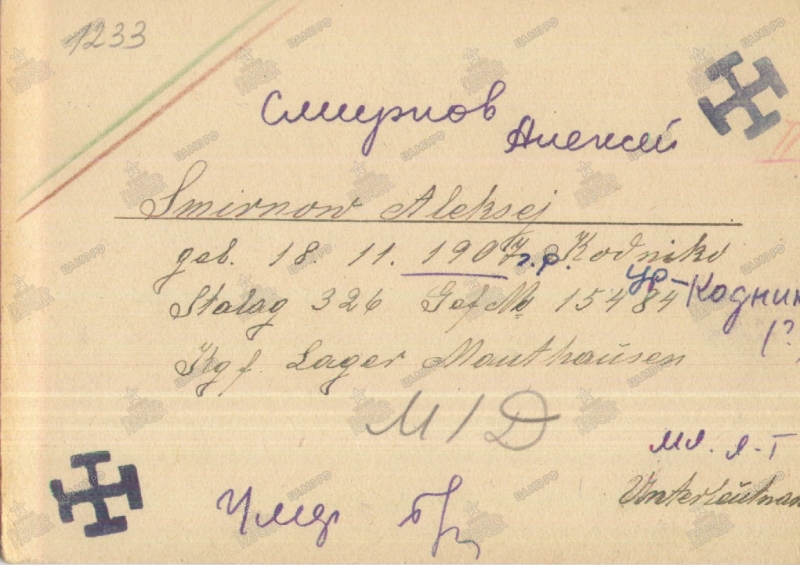 1233
Смирнов
Алексей
Smirnow Aleksej
geb. 18. 11. 1907 г.р. Kodniko
ур-Кодник
(?)
Stalag 326 Gef № 15484
Kgf. Lager Mauthausen
M/D
мл. л-т
Unterleutnan
Умер б/л